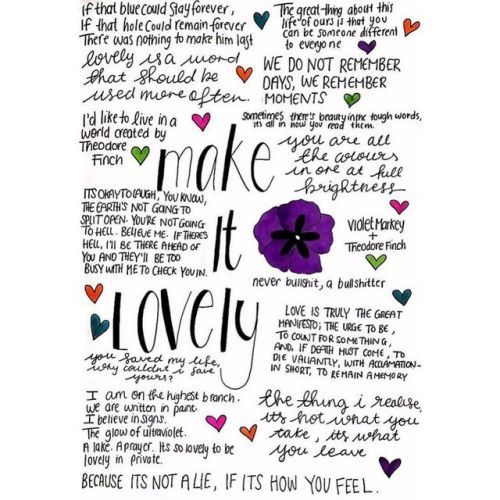 If that blue could stay forever,
If that hole could remain forever
There was nothing to make him last
lovely is a word
that should be
used more often.
The great thing about this
life of ours is that you
can be someone different
to everyone
WE DO NOT REMEMBER
DAYS, WE REMEMBER
MOMENTS
I'd like to live in a
world created by
Theodore
Finch
sometimes there's beauty in the tough words,
its all in how you read them.
you are all
the colours
in one at full
brightness
make
It
LOVELY
ITS OKAY TO LAUGH, YOU KNOW,
THE EARTH'S NOT GOING TO
SPLIT OPEN. YOU'RE NOT GOING
TO HELL. BELIEVE ME. IF THERE'S
HELL, I'll BE THERE AHEAD OF
YOU AND THEY'll BE TOO
BUSY WITH ME TO CHECK YOU IN.
Violet Markey
+
Theodore Finch
never bullshit, a bullshitter
LOVE IS TRULY THE GREAT
MANIFESTO; THE URGE TO BE,
TO COUNT FOR SOMETHING,
AND, IF DEATH MUST COME, TO
DIE VALIANTLY, WITH ACCLAMATION-
IN SHORT, TO REMAIN A MEMORY
you saved my life,
why couldnt i save
yours?
I am on the highest branch.
we are written in paint
I believe in signs.
The glow of ultraviolet.
A lake. A prayer. Its so lovely to be
lovely in private.
the thing i realise,
its not what you
take, its what
you leave
BECAUSE ITS NOT A LIE, IF ITS HOW YOU FEEL.